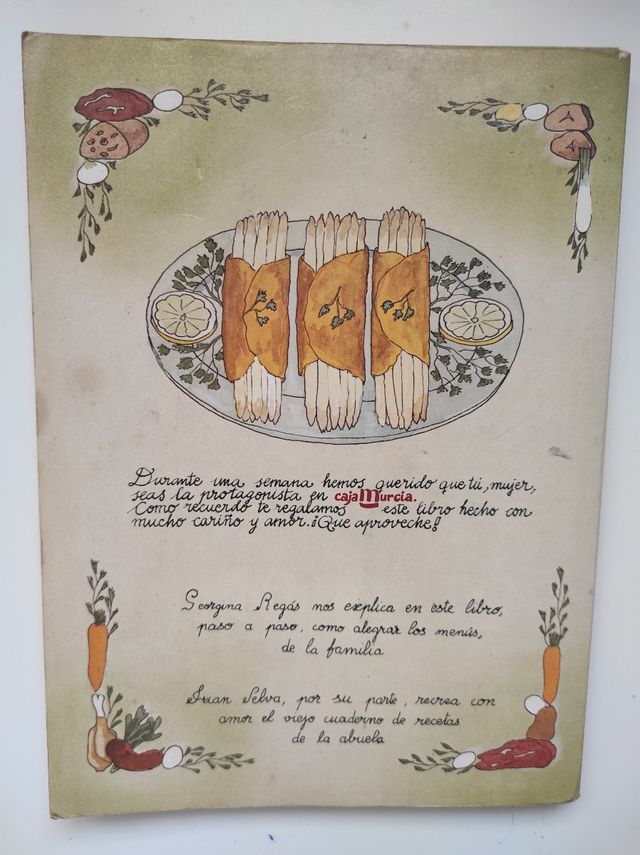 Durante una semana hemos querido que tú, mujer,
seas la protagonista en caja murcia.
Como recuerdo te regalamos este libro hecho con
mucho cariño y amor. ¡Que aproveche!
Georgina Regás nos explica en este libro,
paso a paso, como alegrar los menús,
de la familia
Juan Selva, por su parte, recrea con
amor el viejo cuaderno de recetas
de la abuela